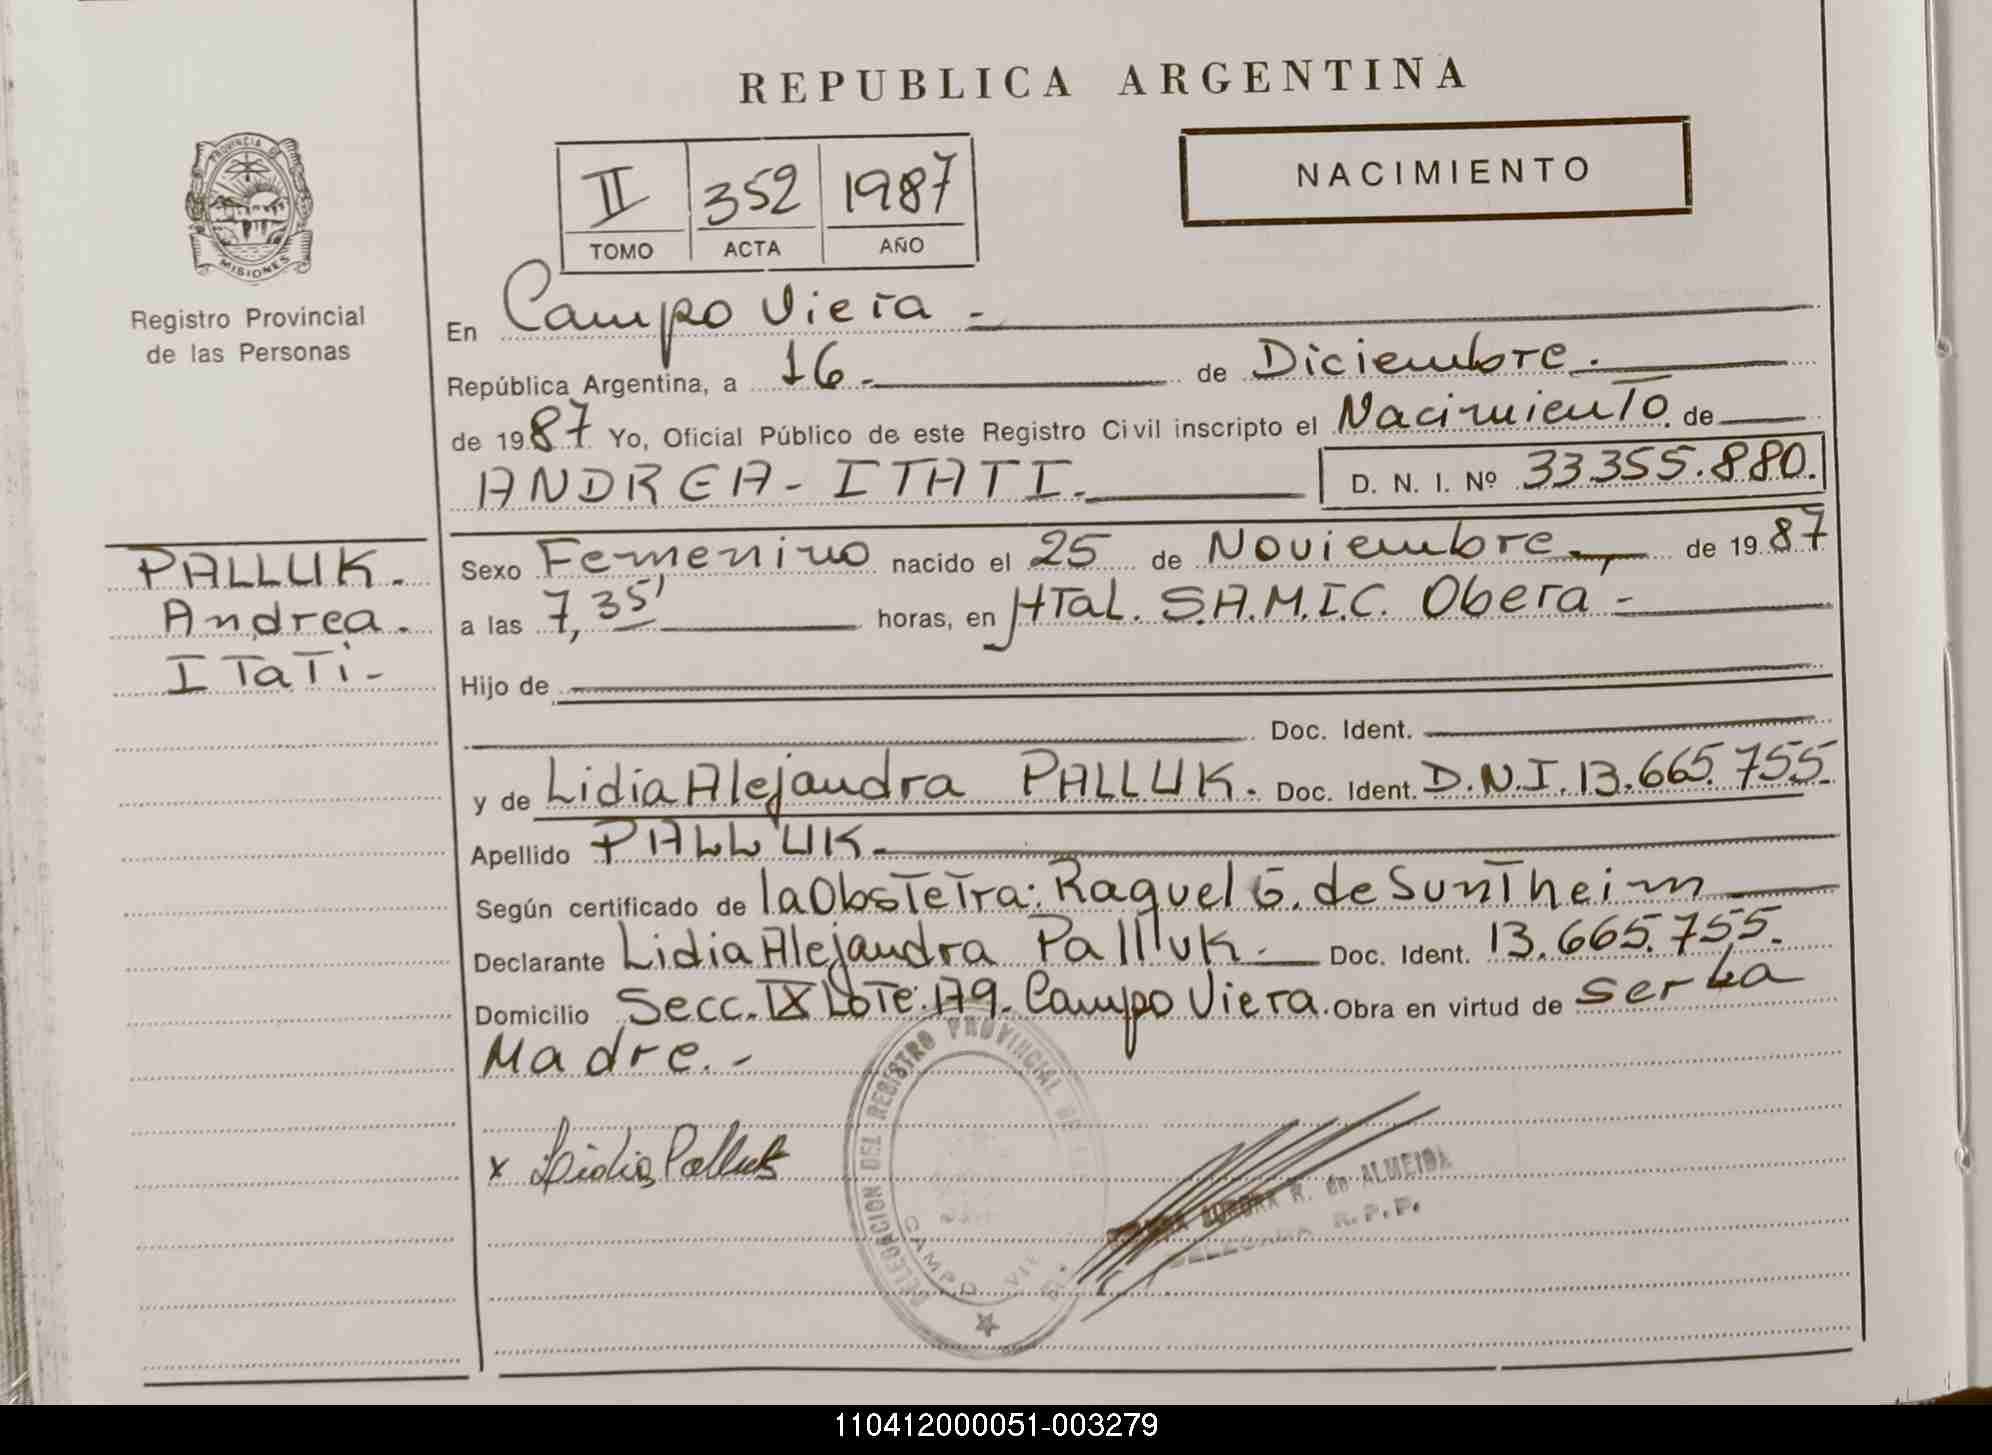 REPUBLICA ARGENTINA
PROVINCIA DE
MISIONES
Registro Provincial
de las Personas
II 352 1987
TOMO ACTA AÑO
NACIMIENTO
En Campo Viera -
República Argentina, a 16.- de Diciembre.
de 1987 Yo, Oficial Público de este Registro Civil inscripto el Nacimiento. de
ANDREA - ITATI. D. N. I. Nº 33.355.880.
PALLUK.
Andrea.
ITaTi-
Sexo Femenino nacido el 25 de Noviembre de 1987
a las 7,35' horas, en HTal. S.A.M.I.C. Obera -
Hijo de
Doc. Ident.
y de Lidia Alejandra PALLUK. Doc. Ident. D.N.I. 13.665.755.
Apellido PALLUK.
Según certificado de la ObsTeTra: Raquel G. de SunTheim
Declarante Lidia Alejandra Palluk.- Doc. Ident. 13.665.755.
Domicilio Secc. IX LoTe: 179. Campo Viera. Obra en virtud de ser La
Madre.-
x Lidia Palluk
DELEGACION DEL REGISTRO PROVINCIAL DE
CAMPO VIE
AURORA R. de ALMEIDA
R.P.P.
110412000051-003279